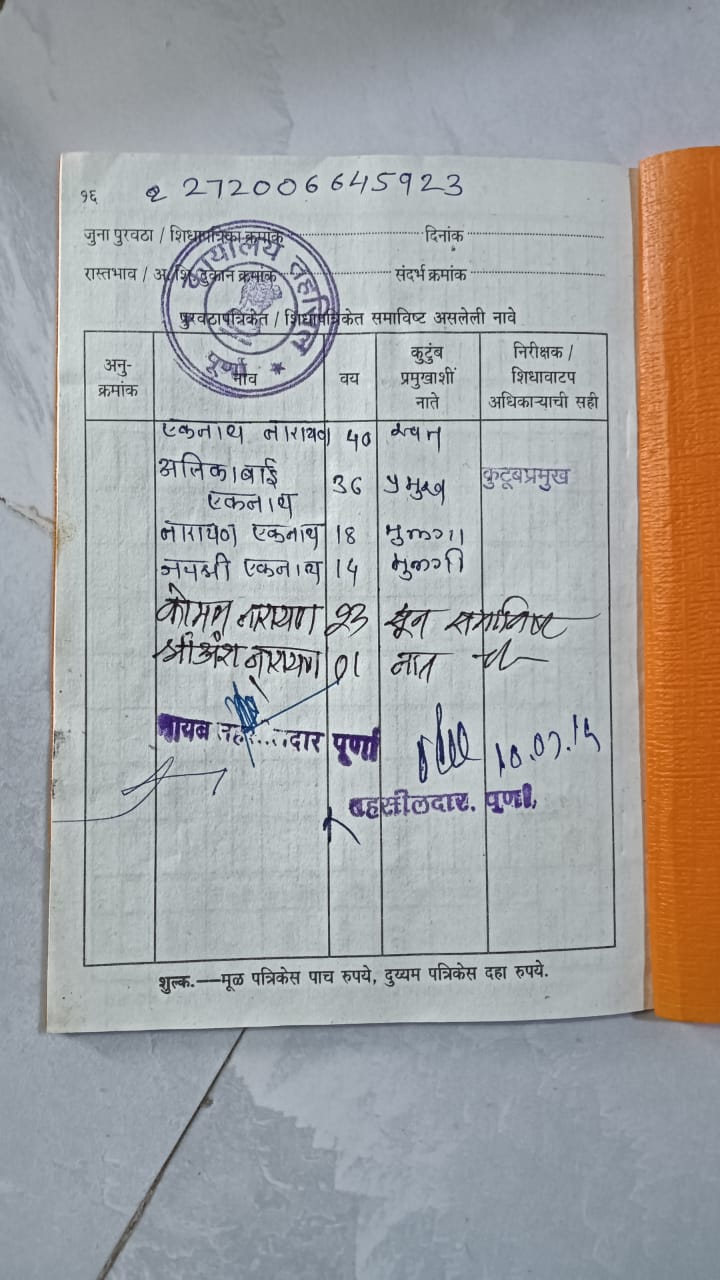 १६ 272006645923
जुना पुरवठा / शिधापत्रिका क्रमांक दिनांक
रास्तभाव / अ. शि. दुकान क्रमांक संदर्भ क्रमांक
कार्यालय तहसिल पूर्णा
पुरवठापत्रिकेत / शिधापत्रिकेत समाविष्ट असलेली नावे
अनु-क्रमांक नाव वय कुटुंब प्रमुखाशी नाते निरीक्षक / शिधावाटप अधिकाऱ्याची सही
एकनाथ नारायण 40
36 प्रमुख कुटूबप्रमुख
एकनाथ
नारायण एकनाथ 18 मुलगा
जयश्री एकनाथ 14 मुलगी
नारायण 23 सून समाविष्ट
श्रीअंश नारायण 01 नात
नायब तह...लदार पूर्णा
तहसीलदार. पूर्णा.
शुल्क.—मूळ पत्रिकेस पाच रुपये, दुय्यम पत्रिकेस दहा रुपये.